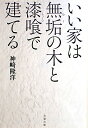 いい家は
無垢の木と
漆喰で
建てる
神崎隆洋